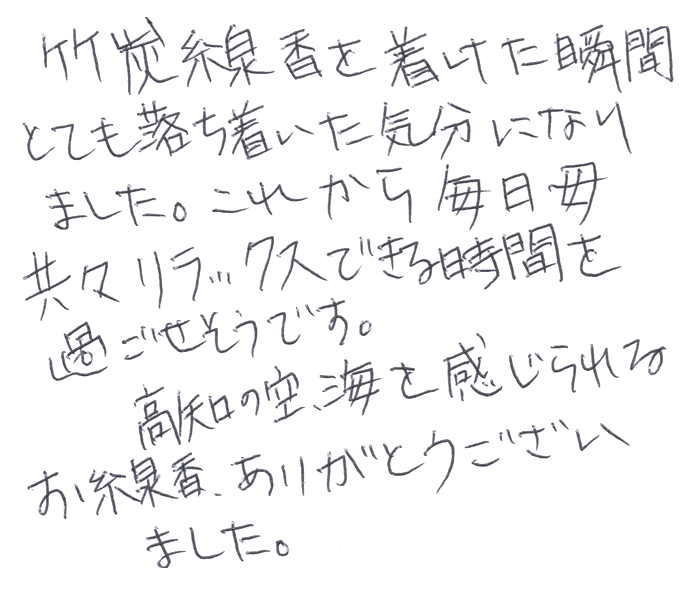 竹炭線香を着けた瞬間
とても落ち着いた気分になり
ました。これから毎日毋
共々リラックスできる時間を
過ごせそうです。
高知の空、海を感じられる
お線香、ありがとうござい
ました。